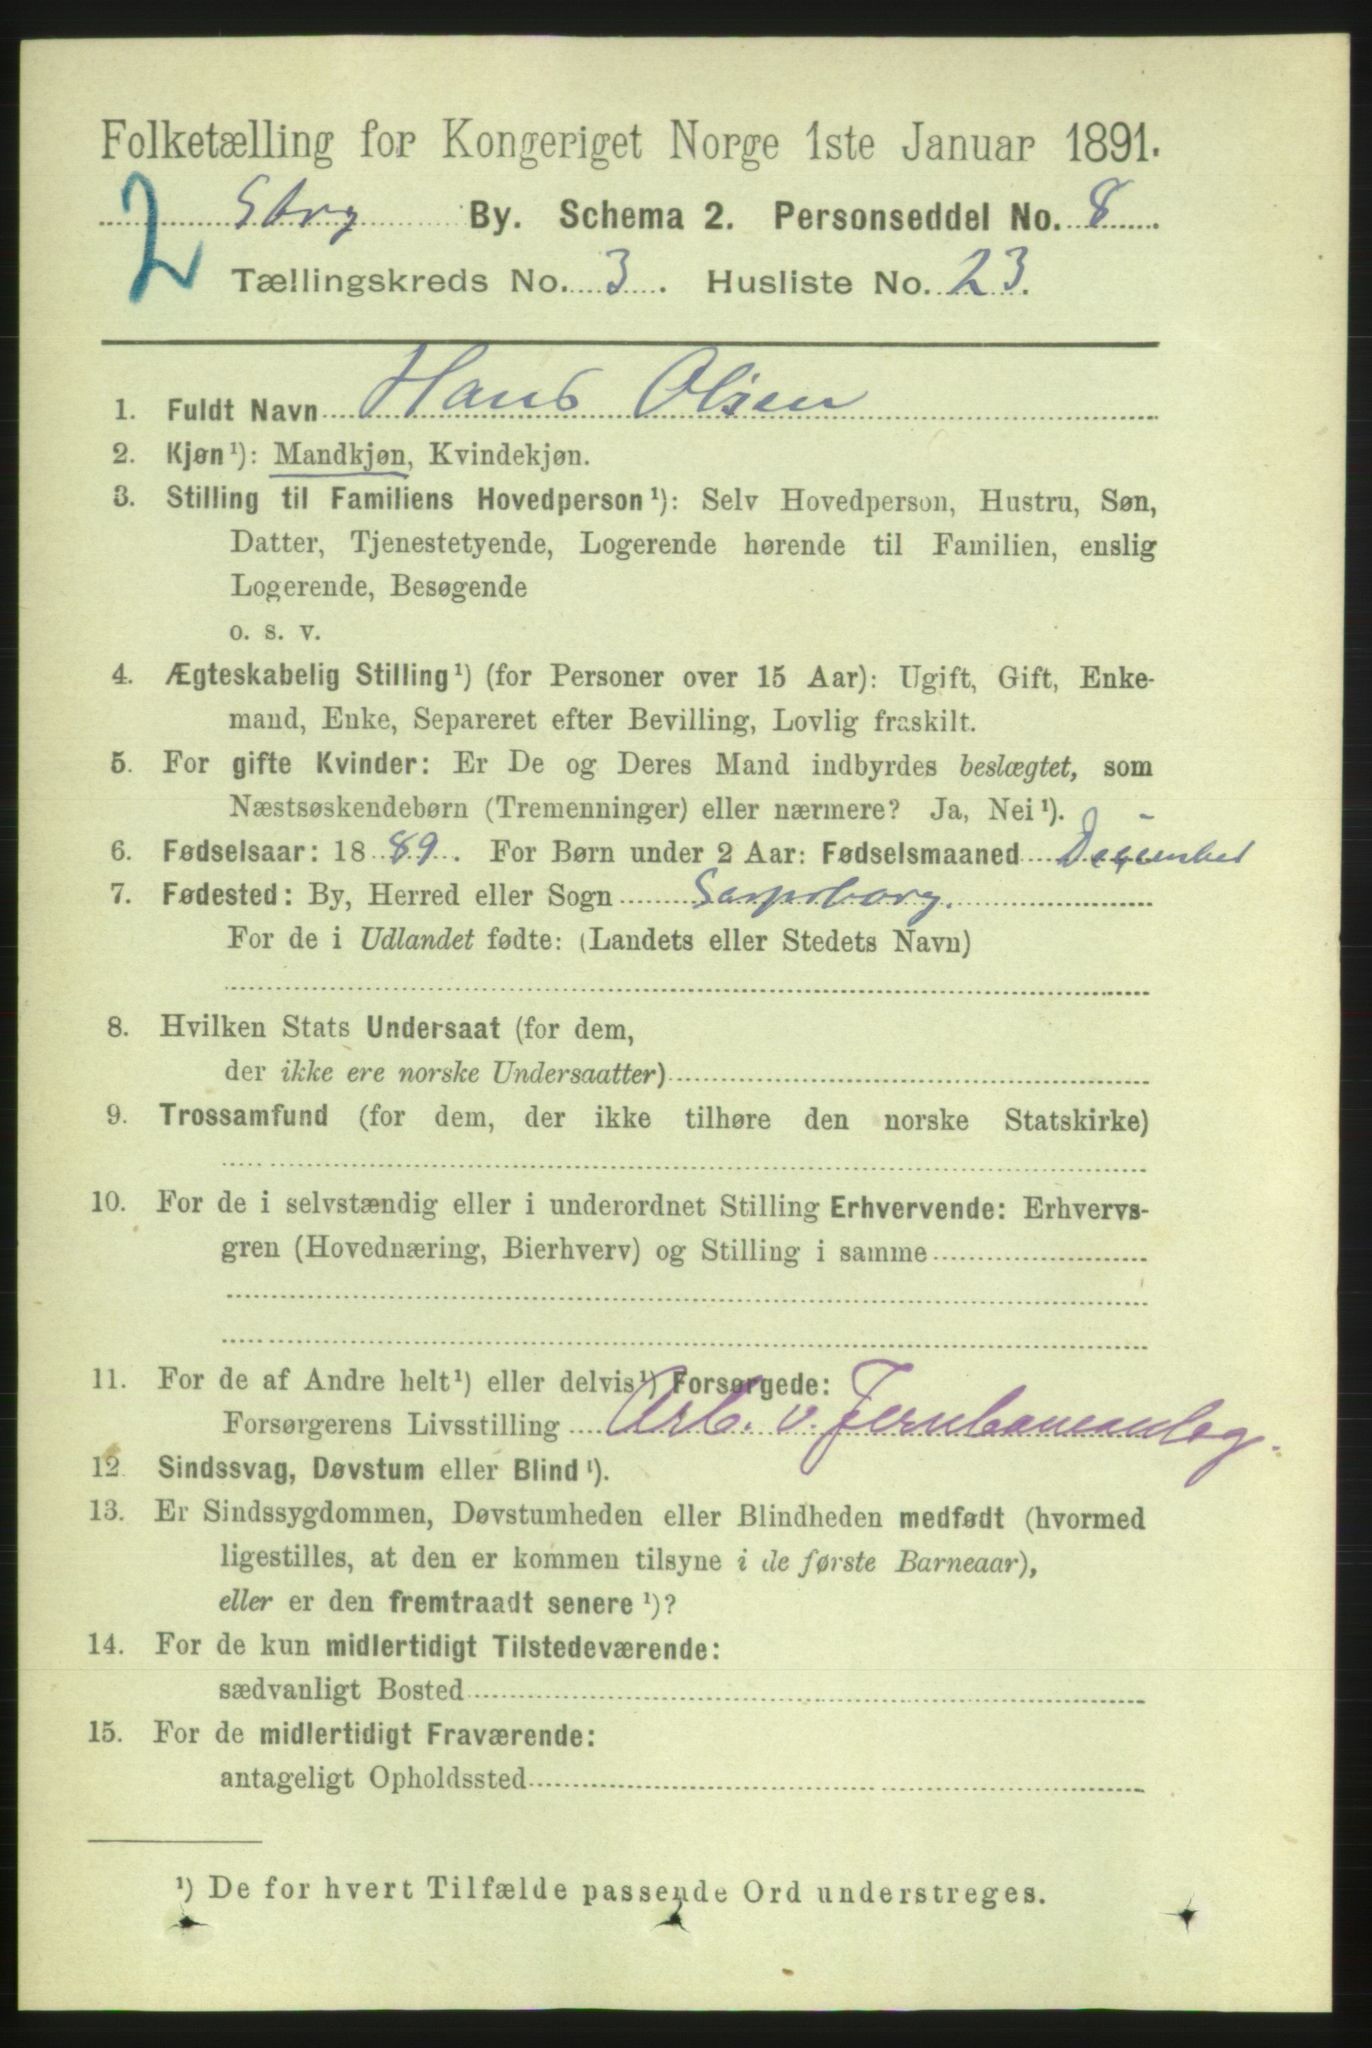 Folketælling for Kongeriget Norge 1ste Januar 1891.
2 Sbrg By. Schema 2. Personseddel No. 8
Tællingskreds No. 3. Husliste No. 23.
1. Fuldt Navn Hans Olsen
2. Kjøn¹): Mandkjøn, Kvindekjøn.
3. Stilling til Familiens Hovedperson¹): Selv Hovedperson, Hustru, Søn,
Datter, Tjenestetyende, Logerende hørende til Familien, enslig
Logerende, Besøgende
o. s. v.
4. Ægteskabelig Stilling¹) (for Personer over 15 Aar): Ugift, Gift, Enke-
mand, Enke, Separeret efter Bevilling, Lovlig fraskilt.
5. For gifte Kvinder: Er De og Deres Mand indbyrdes beslægtet, som
Næstsøskendebørn (Tremenninger) eller nærmere? Ja, Nei¹).
6. Fødselsaar: 1889. For Børn under 2 Aar: Fødselsmaaned December
7. Fødested: By, Herred eller Sogn Sarpsborg.
For de i Udlandet fødte: (Landets eller Stedets Navn)
8. Hvilken Stats Undersaat (for dem,
der ikke ere norske Undersaatter)
9. Trossamfund (for dem, der ikke tilhøre den norske Statskirke)
10. For de i selvstændig eller i underordnet Stilling Erhvervende: Erhvervs-
gren (Hovednæring, Bierhverv) og Stilling i samme
11. For de af Andre helt¹) eller delvis¹) Forsørgede:
Forsørgerens Livsstilling Arb. v. Jernbaneanlæg.
12 Sindssvag, Døvstum eller Blind¹).
13. Er Sindssygdommen, Døvstumheden eller Blindheden medfødt (hvormed
ligestilles, at den er kommen tilsyne i de første Barneaar),
eller er den fremtraadt senere¹)?
14. For de kun midlertidigt Tilstedeværende:
sædvanligt Bosted
15. For de midlertidigt Fraværende:
antageligt Opholdssted
¹) De for hvert Tilfælde passende Ord understreges.